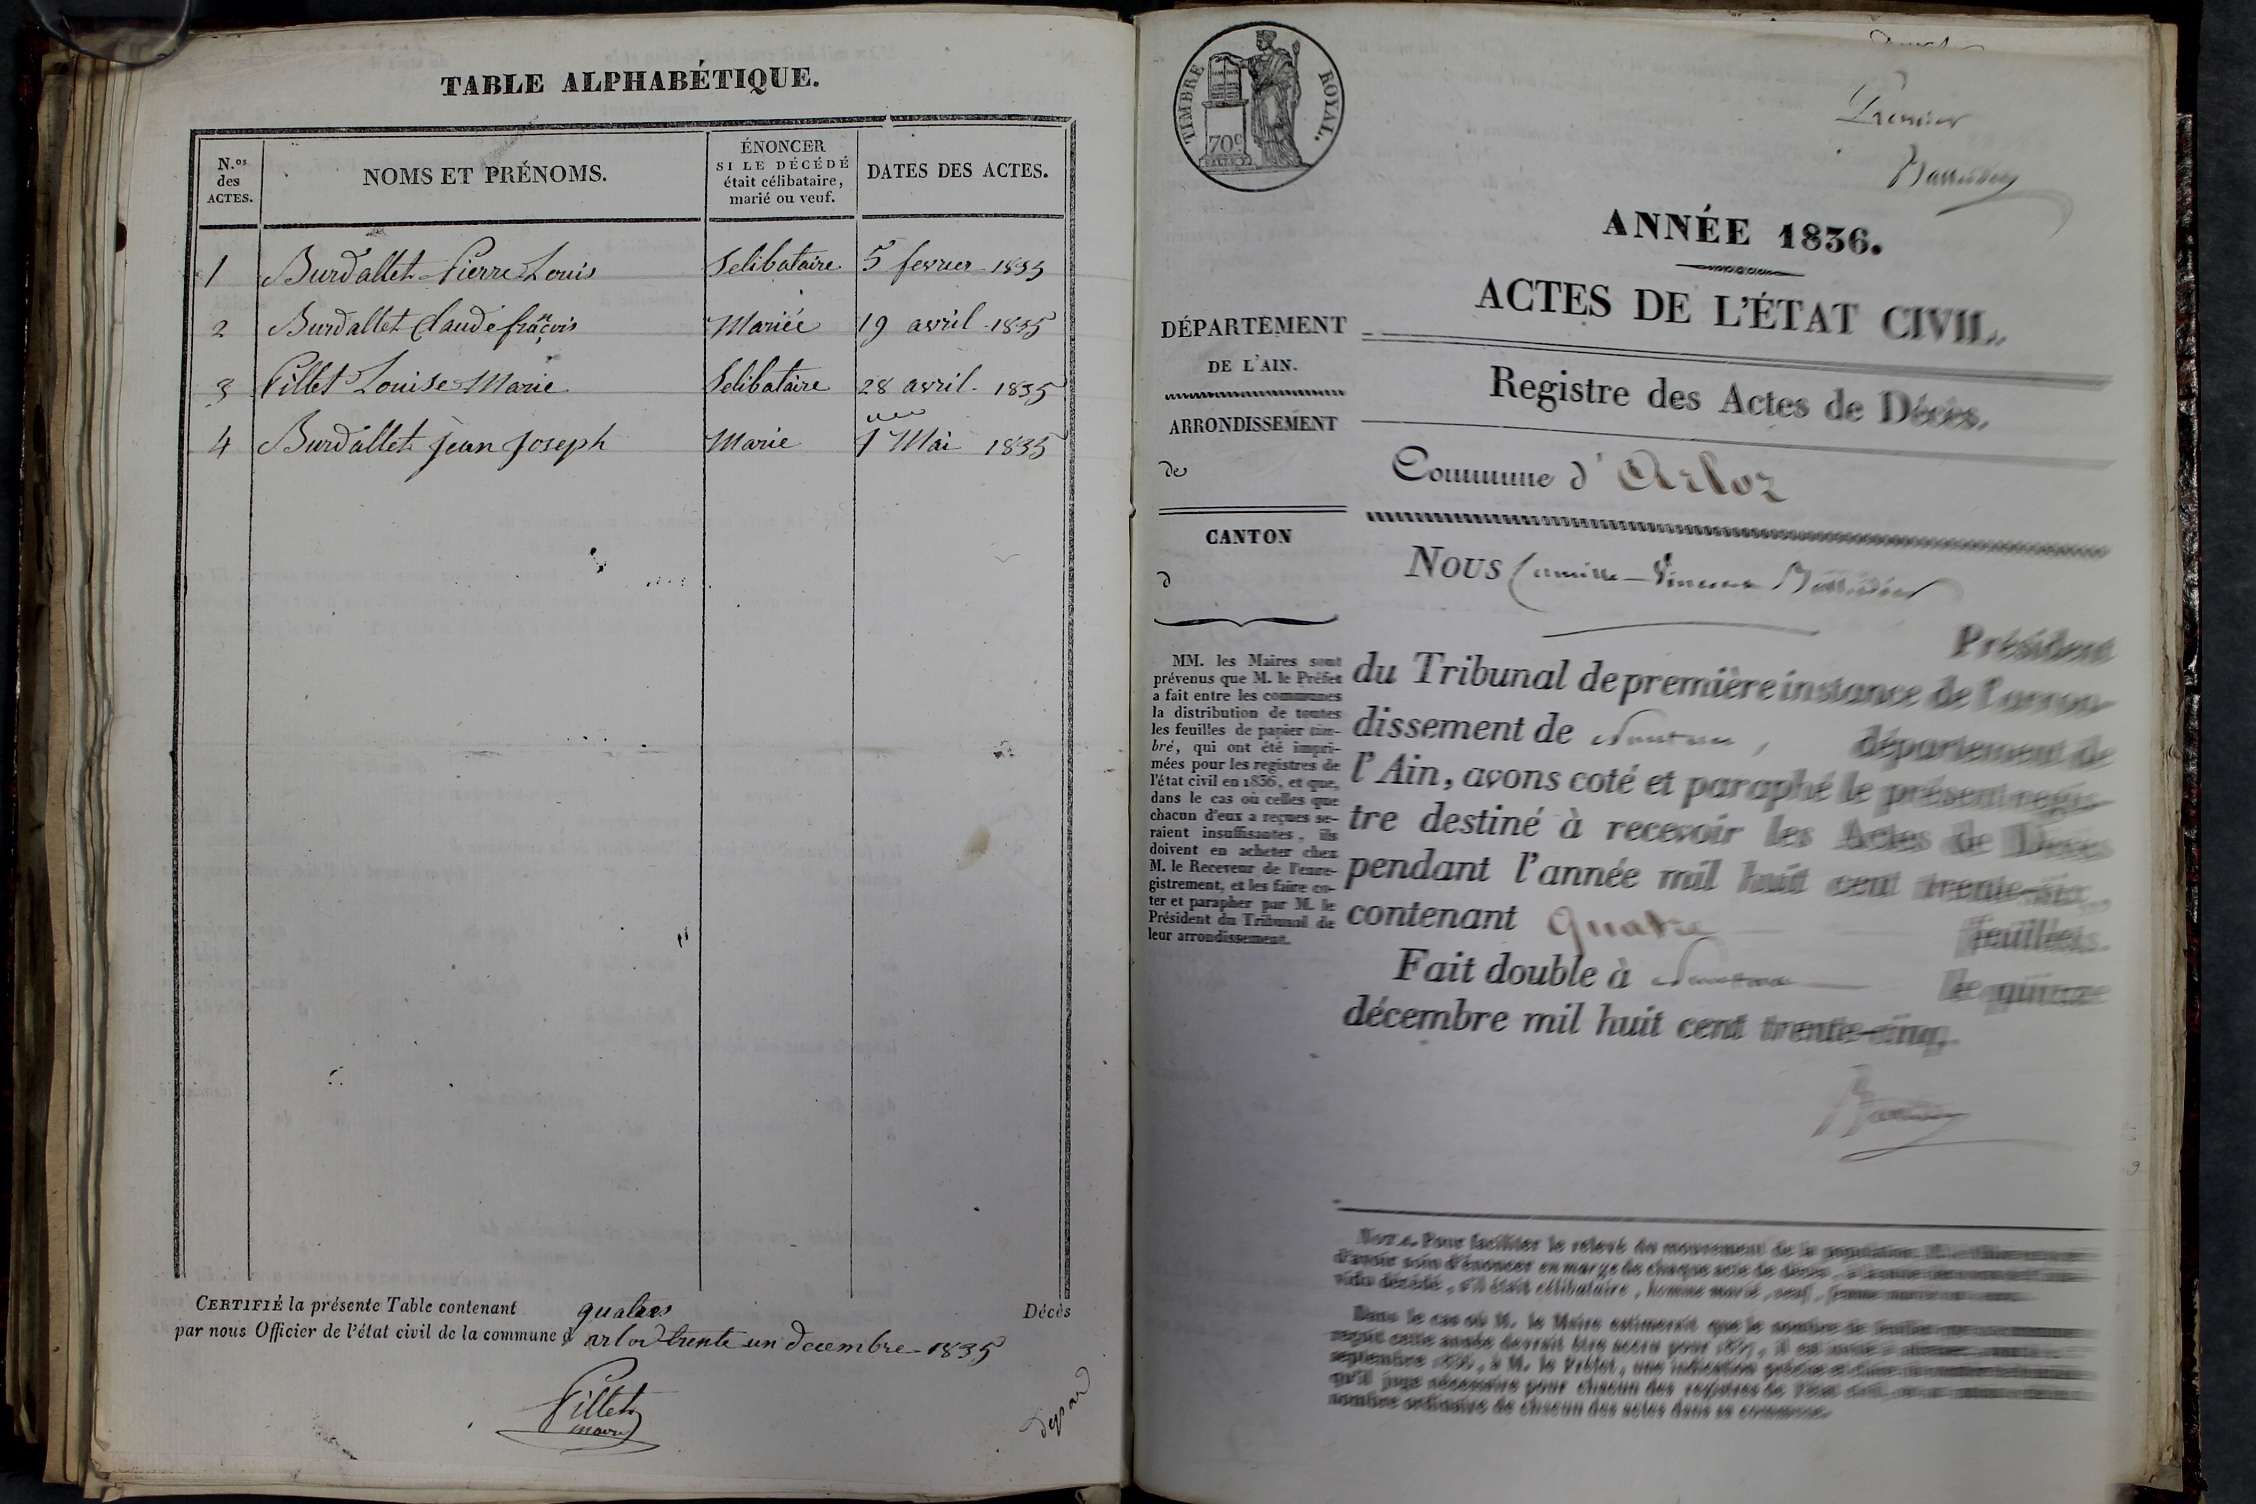 TABLE ALPHABÉTIQUE.
N.os des ACTES.
NOMS ET PRÉNOMS.
ÉNONCER SI LE DÉCÉDÉ était célibataire, marié ou veuf.
DATES DES ACTES.
1 Burdallet Pierre Louis Selibataire 5 fevrier 1835
2 Burdallet Claude françois Mariée 19 avril 1835
3 Pillet Louise Marie Selibataire 28 avril 1835
4 Burdallet jean joseph Marie 1 Mai 1835
CERTIFIÉ la présente Table contenant quatre Décès
par nous Officier de l'état civil de la commune d arlod trente un decembre 1835
Pillet
maire
TIMBRE ROYAL.
70c
Premier
ANNÉE 1836.
ACTES DE L'ÉTAT CIVIL.
Registre des Actes de Décès.
Commune d'Arloz
DÉPARTEMENT
DE L'AIN.
ARRONDISSEMENT
de
CANTON
d
MM. les Maires sont
prévenus que M. le Préfet
a fait entre les communes
la distribution de toutes
les feuilles de papier tim-
bré, qui ont été impri-
mées pour les registres de
l'état civil en 1836, et que,
dans le cas où celles que
chacun d'eux a reçues se-
raient insuffisantes, ils
doivent en acheter chez
M. le Receveur de l'enre-
gistrement, et les faire co-
ter et parapher par M. le
Président du Tribunal de
leur arrondissement.
Nous Camille Vincent
Président
du Tribunal de première instance de l'arron-
dissement de Nantua, département de
l'Ain, avons coté et paraphé le présent regis-
tre destiné à recevoir les Actes de Décès
pendant l'année mil huit cent trente-six,
contenant quatre feuillets.
Fait double à Nantua le quinze
décembre mil huit cent trente-cinq.
NOTA. Pour faciliter le relevé du mouvement de la population,
d'avoir soin d'énoncer en marge de chaque acte de décès,
vidu décédé, s'il était célibataire, homme marié, veuf,
Dans le cas où M. le Maire estimerait que le nombre de feuilles
reçoit cette année devrait être accru pour 1837, il est invité à
septembre 1836, à M. le Préfet, une indication précise
qu'il juge nécessaire pour chacun des registres de l'état civil,
nombre ordinaire de chacun des actes dans sa commune.